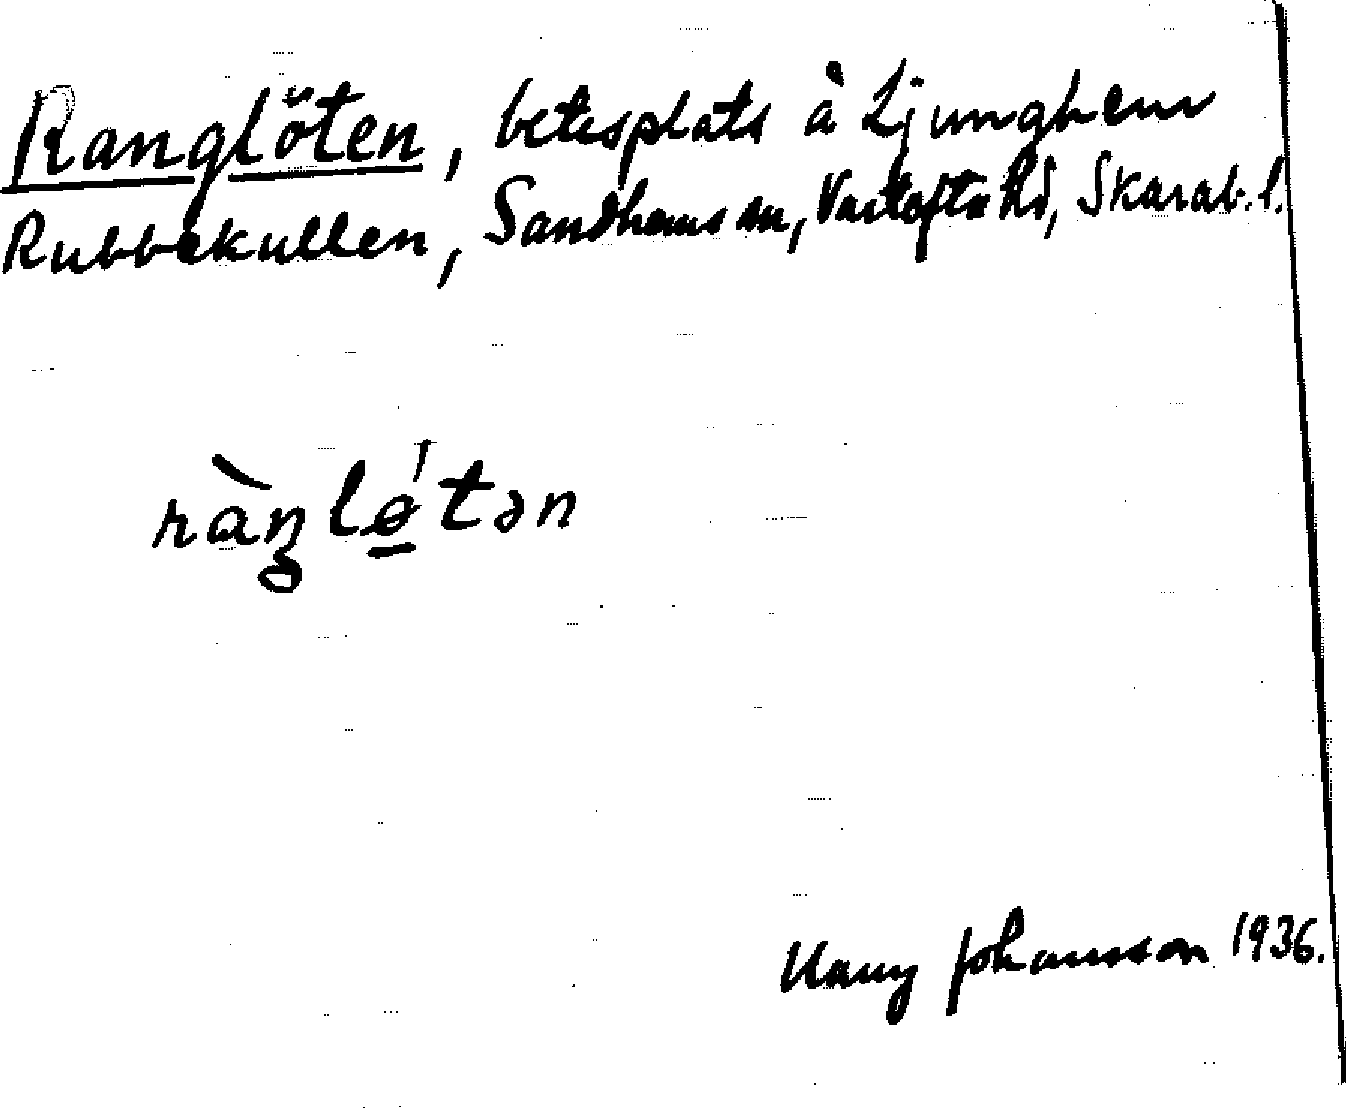 Ranglöten, betesplats å Ljunghem
Rubbekullen, Sandhems sn, Vartofta hd, Skarab. l.
ràŋlǿ̠tən
Harry Johansson 1936.